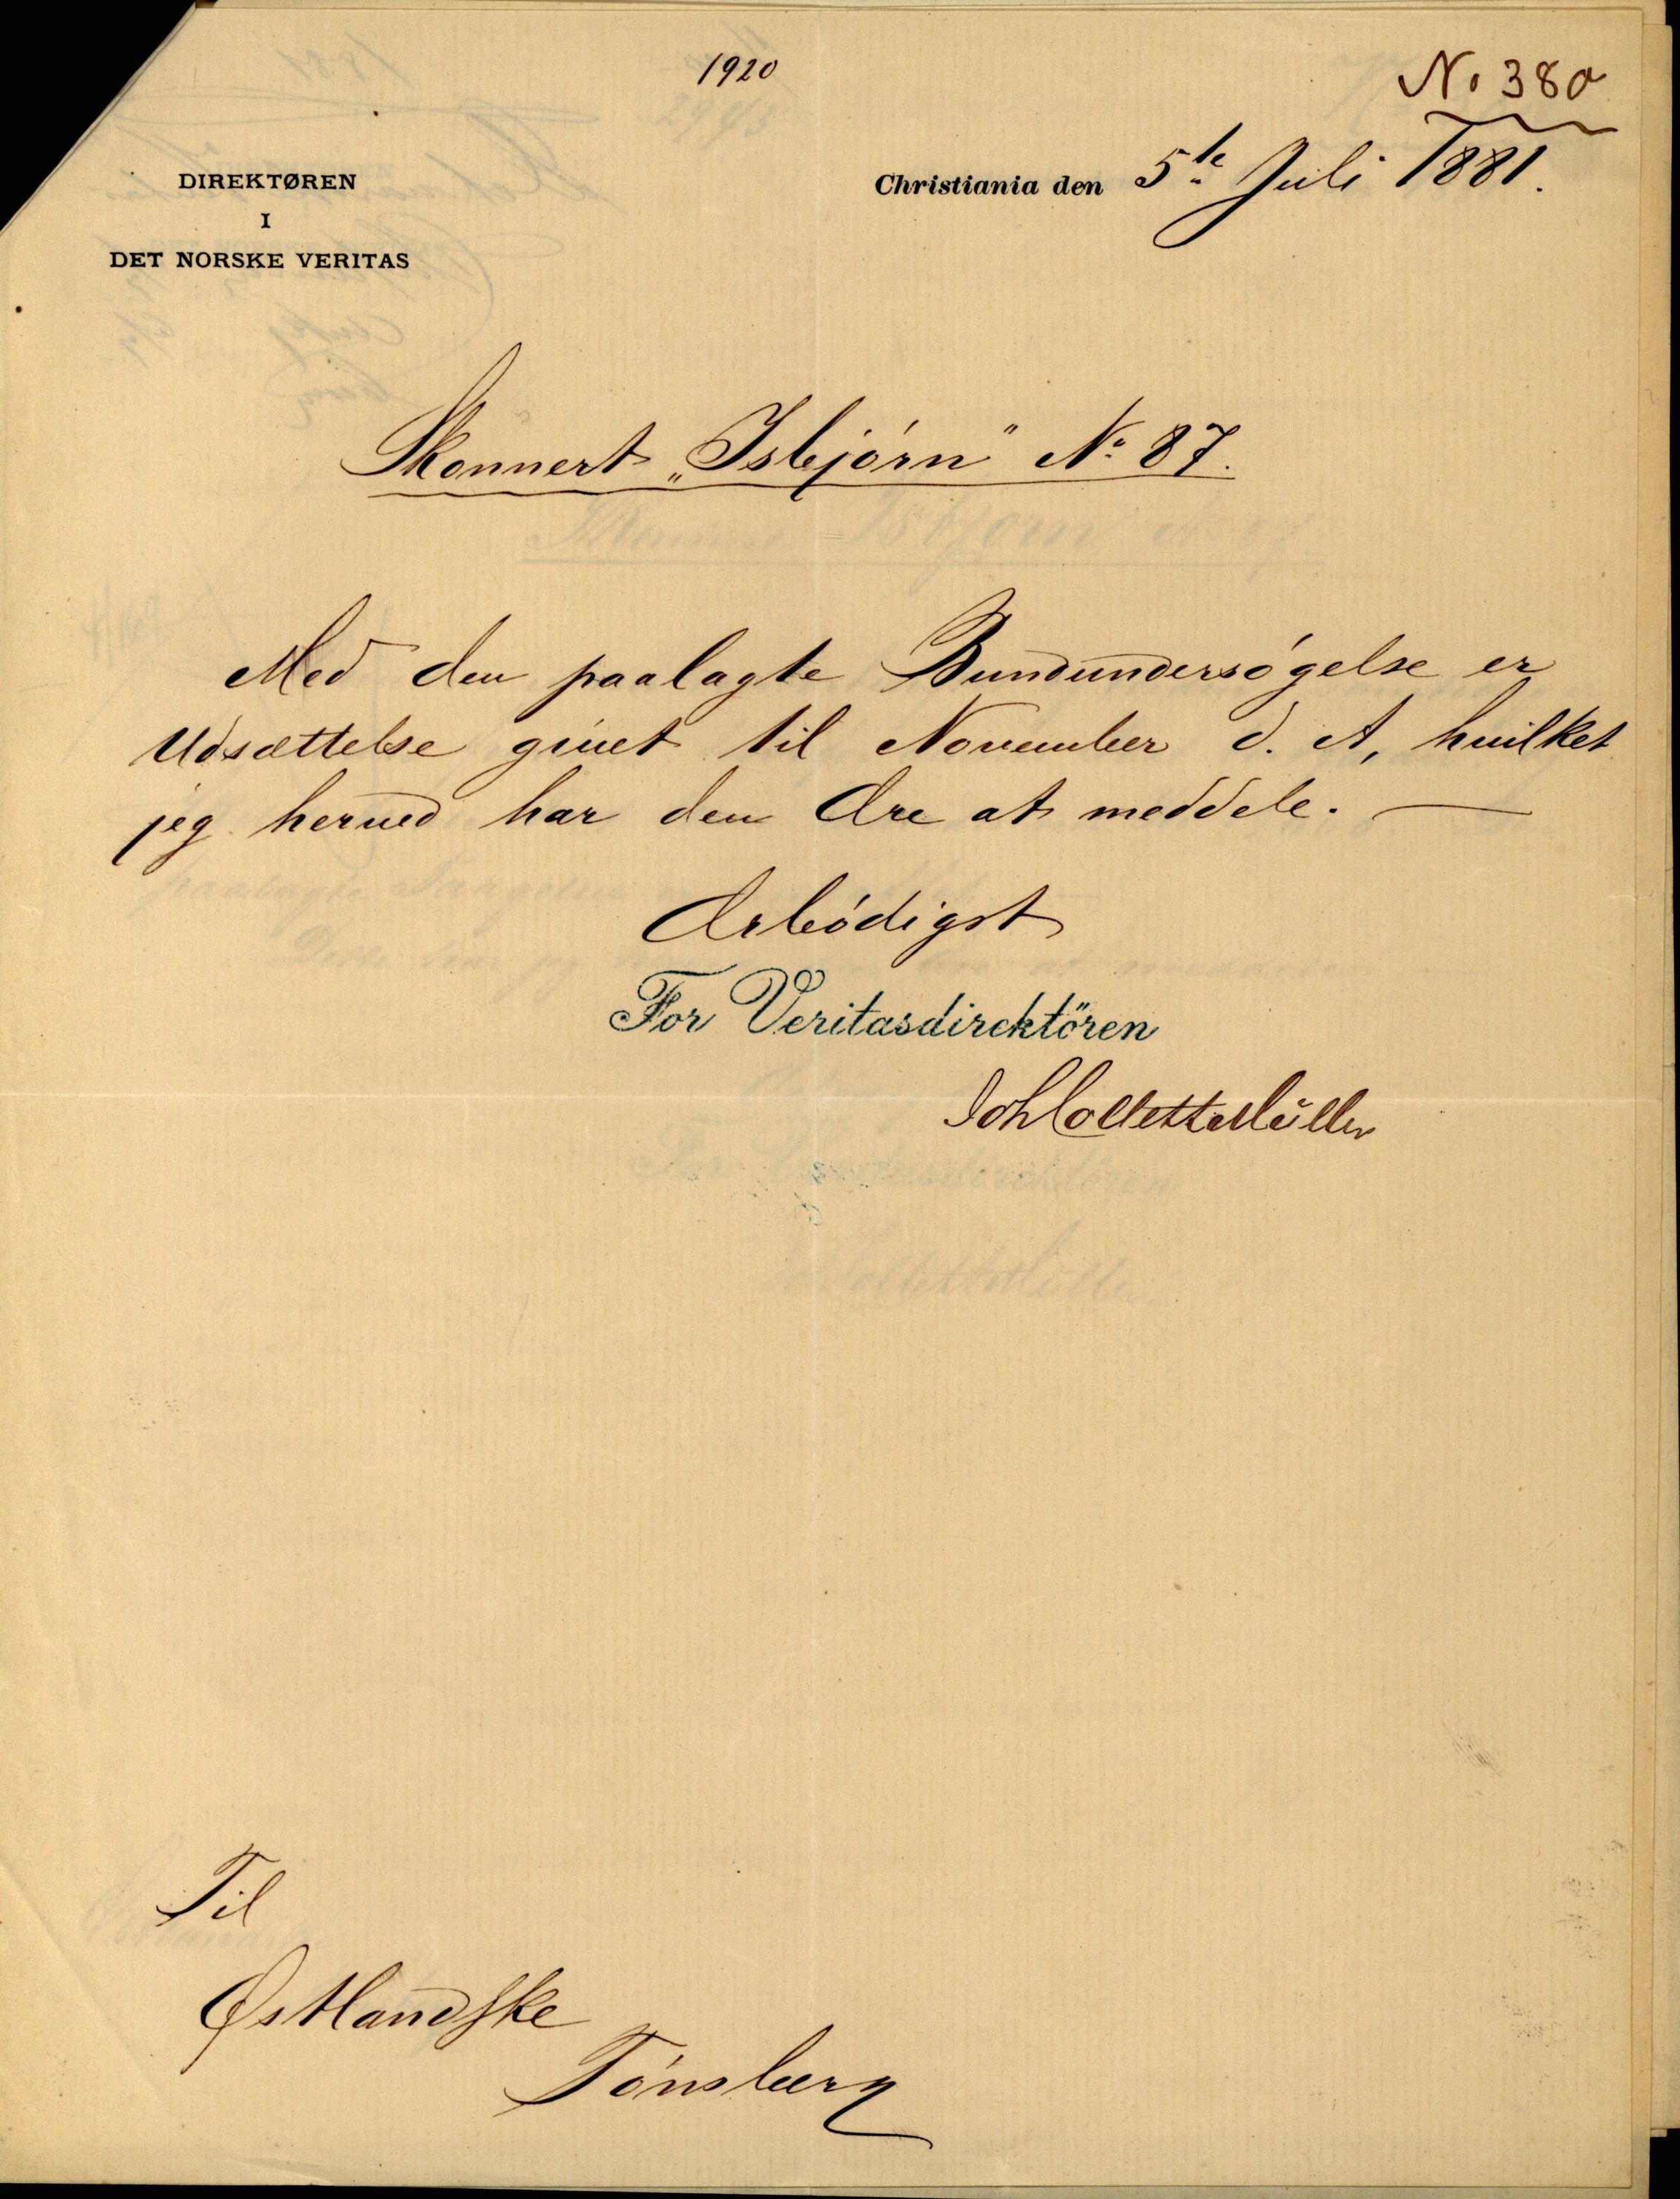 1920
No 380
DIREKTØREN
I
DET NORSKE VERITAS
Christiania den 5te Juli 1881.
Skonnert „Isbjørn" No 87.
Med den paalagte Bundundersøgelse er
Udsættelse givet til November d. A, hvilket
jeg herved har den Ære at meddele. —
Ærbødigst
For Veritasdirektören
Joh Collett Müller
Til
Østlandske
Tønsberg